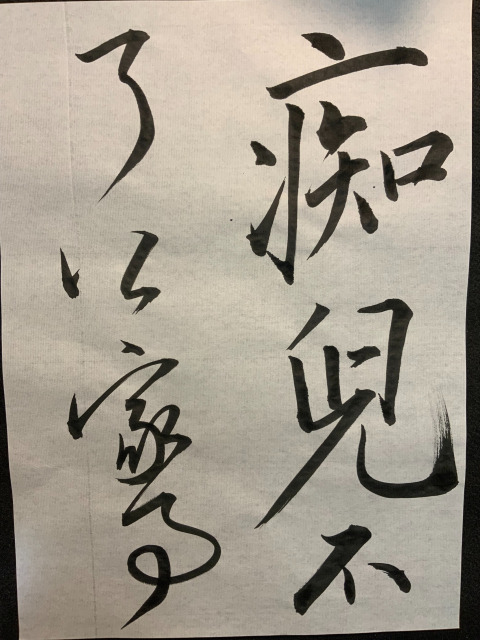 痴兒不
了公家事